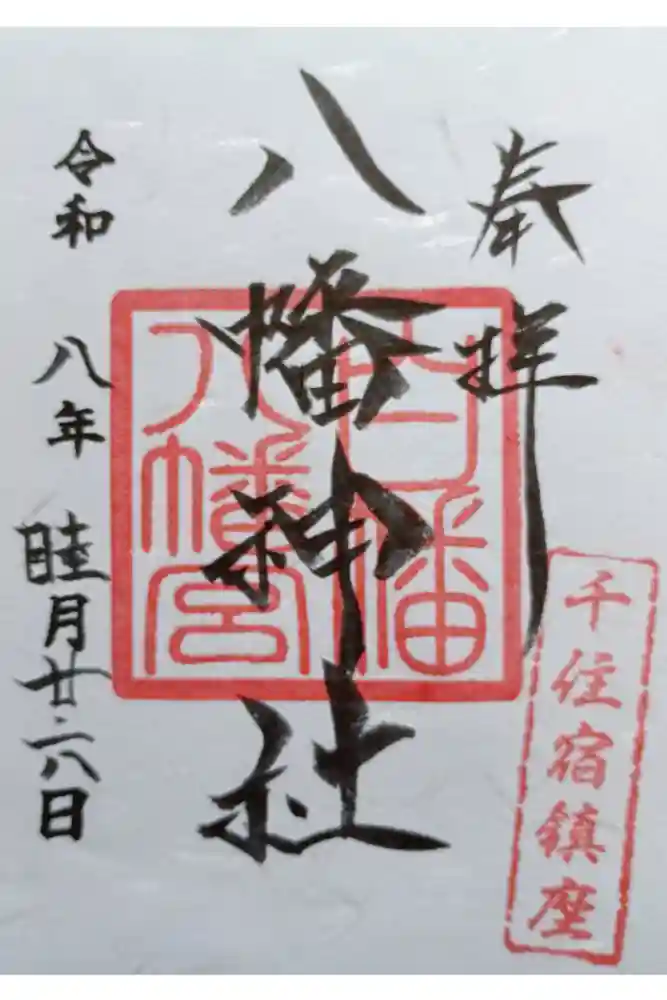 奉拝
千住宿鎮座
八幡神社
白幡
八幡宮
令和 八年 睦月廿六日